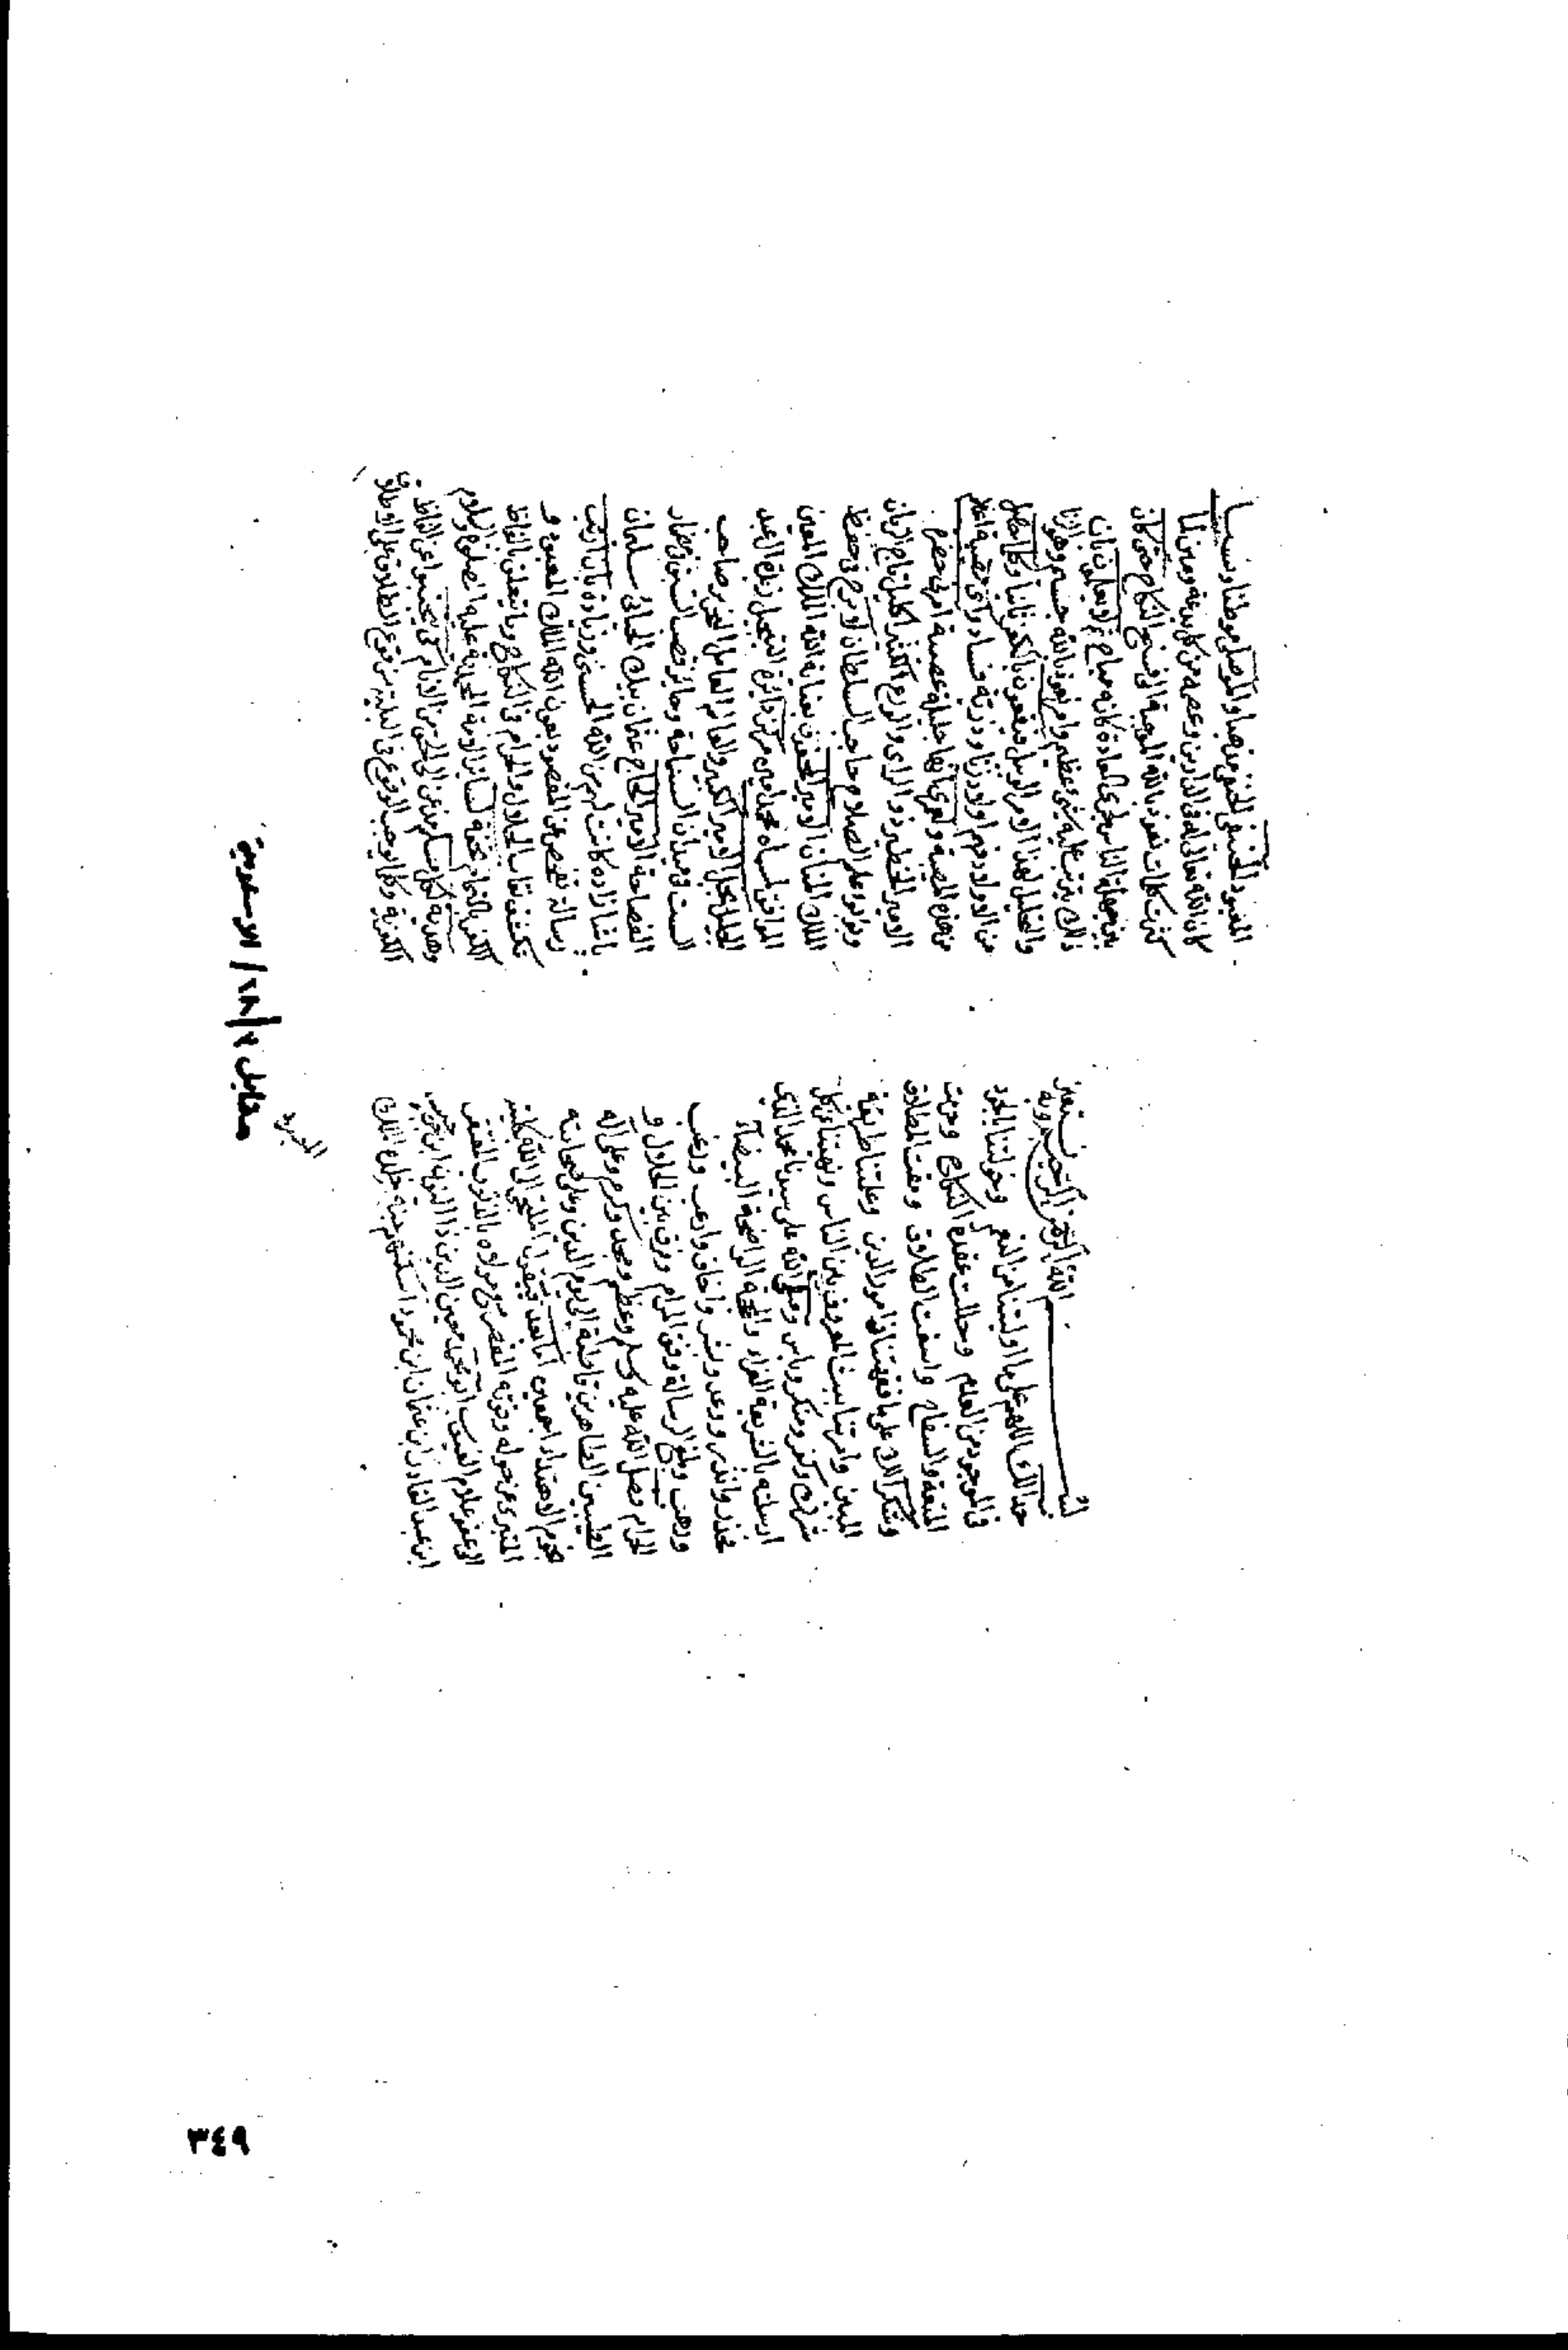 بسم الله الرحمن الرحيم وبه نستعين
حمدا لك اللهم على ما اوليتنا من النعم وخولتنا بالجود
في الموجود من العدم وحللت عقدة النكاح وحرمت
المتعة والسفاح وابغضت الطلاق ومقت المطلاق
وشكرا لك على ما فقهتنا في امور الدين وعلمتنا طريقة
المتقين وامرتنا ببث المعروف بين الناس ونهيتنا عن كل
شرك وكفر ومنكر وباس وصلى الله على سيدنا محمد الذي
ارسلته بالشريعة الغراء والحجة الواضحة البيضاء
فحذر وانذر ووعد وبشر واخاف وارعب ورغب
ورهب وبلغ الرسالة وفق المرام وفرق بين الحلال و
الحرام فصلى الله عليه وسلم وعظم ومجد وكرم وعلى آله
الطيبين الطاهرين قاطبة الى يوم الدين وعلى صحابته
نجوم الاهتداء اجمعين اما بعد فيقول الملتجي الى الله بكليته
المتبري عن حوله وقوته المقصر مع مولاه بالذنوب المفتقر
الى عفو علام الغيوب ابو محمد معين الدين
ابن عبد القادر ابن عثمان ابن محمود
العبود الحنيفي الحنفي مذهبا والموصلي موطنا ونسبا
كان الله تعالى له في الدارين وعصمه من كل بدعة ومين لما
كثرت كلمات نعوذ بالله الموجبة الى فسخ النكاح حتى كان
بين جهلة الناس لجري العادة كانه مباح ولا يعلمون بان
ذلك يترتب عليه شيء عظيم وامر نعوذ بالله جسيم وهو الزنا
والتحليل لهذا الامر الوبيل فيقعون بالكفر ثانيا وكل ما حصل
من الاولاد فهم اولاد زنا وذرية فساد واي مصيبة اعظم
من هذه المصيبة ولعمري انها جليلة عصيبة امرني حضرة
الامير الخطير ذو الراي والورع الكثير اكليل تاج الزمان
ونور علم الصلاح حاجب السلطان لا برح في حفظ
الملك المنان الامير المحفوف بعناية الله الملك المعين
الموافق لمسماه محمد امين مركز دائرة التبجيل
الجليل نجل الامير الكبير والعالم العامل النحرير صاحب
السبق في ميدان السماحة وحائز قصب السبق في مضمار
الفصاحة الامير الحاج عثمان بيك الحيائي سليمان
باشا زاده كانت لهم من الله الحسنى وزيادة بان اكتب
رسالة تفصح عن المقصود بعون الله الملك المعبود و
تكشف نقاب الحلال والحرام في النكاح وما يتعلق بالفاظ
الكفر بالتمام تحفة لسائر الامة المحمدية عليه افضل الصلوة والسلام
وهدية لكل مسلم كي يجتنبوا عن الفاظ
الكفرية وكلما يوجب الوقوع في البلية من وقوع الطلاق على الاطلاق
مقابل ٢٨/٢ / الاسعودية
٣٤٩